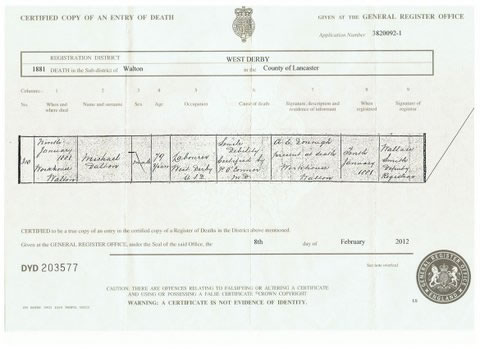 CERTIFIED COPY OF AN ENTRY OF DEATH
GIVEN AT THE GENERAL REGISTER OFFICE
Application Number 3820092-1
REGISTRATION DISTRICT WEST DERBY
1881 DEATH in the Sub-district of Walton in the County of Lancaster
Columns:- 1 2 3 4 5 6 7 8 9
No. When and where died Name and surname Sex Age Occupation Cause of death Signature, description and residence of informant When registered Signature of registrar
Ninth January 1881 Workhouse Walton
Michael
Male
79 Years
Labourer West Derby
Senile Debility Certified by O'Connor
present at death Workhouse Walton
Tenth January 1881
Wallace Smith Deputy Registrar
CERTIFIED to be a true copy of an entry in the certified copy of a Register of Deaths in the District above mentioned.
Given at the GENERAL REGISTER OFFICE, under the Seal of the said Office, the 8th day of February 2012
DYD 203577
See note overleaf
CAUTION: THERE ARE OFFENCES RELATING TO FALSIFYING OR ALTERING A CERTIFICATE
AND USING OR POSSESSING A FALSE CERTIFICATE ©CROWN COPYRIGHT
WARNING: A CERTIFICATE IS NOT EVIDENCE OF IDENTITY.
GENERAL REGISTER OFFICE
ENGLAND